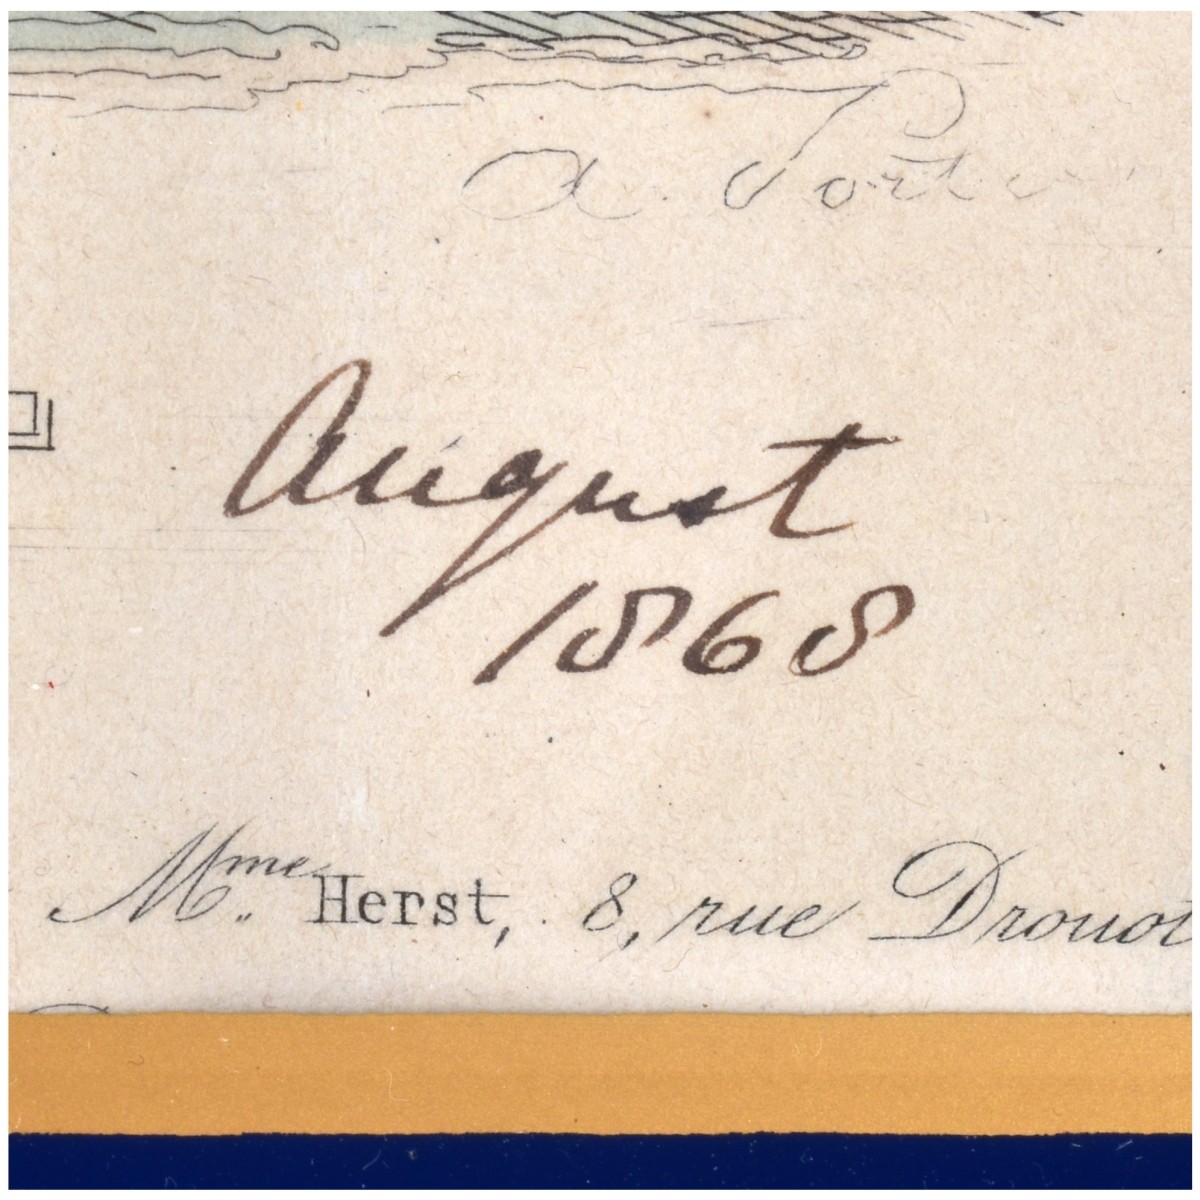 A. Portier
August
1868
Mme. Herst, 8, rue Drouot